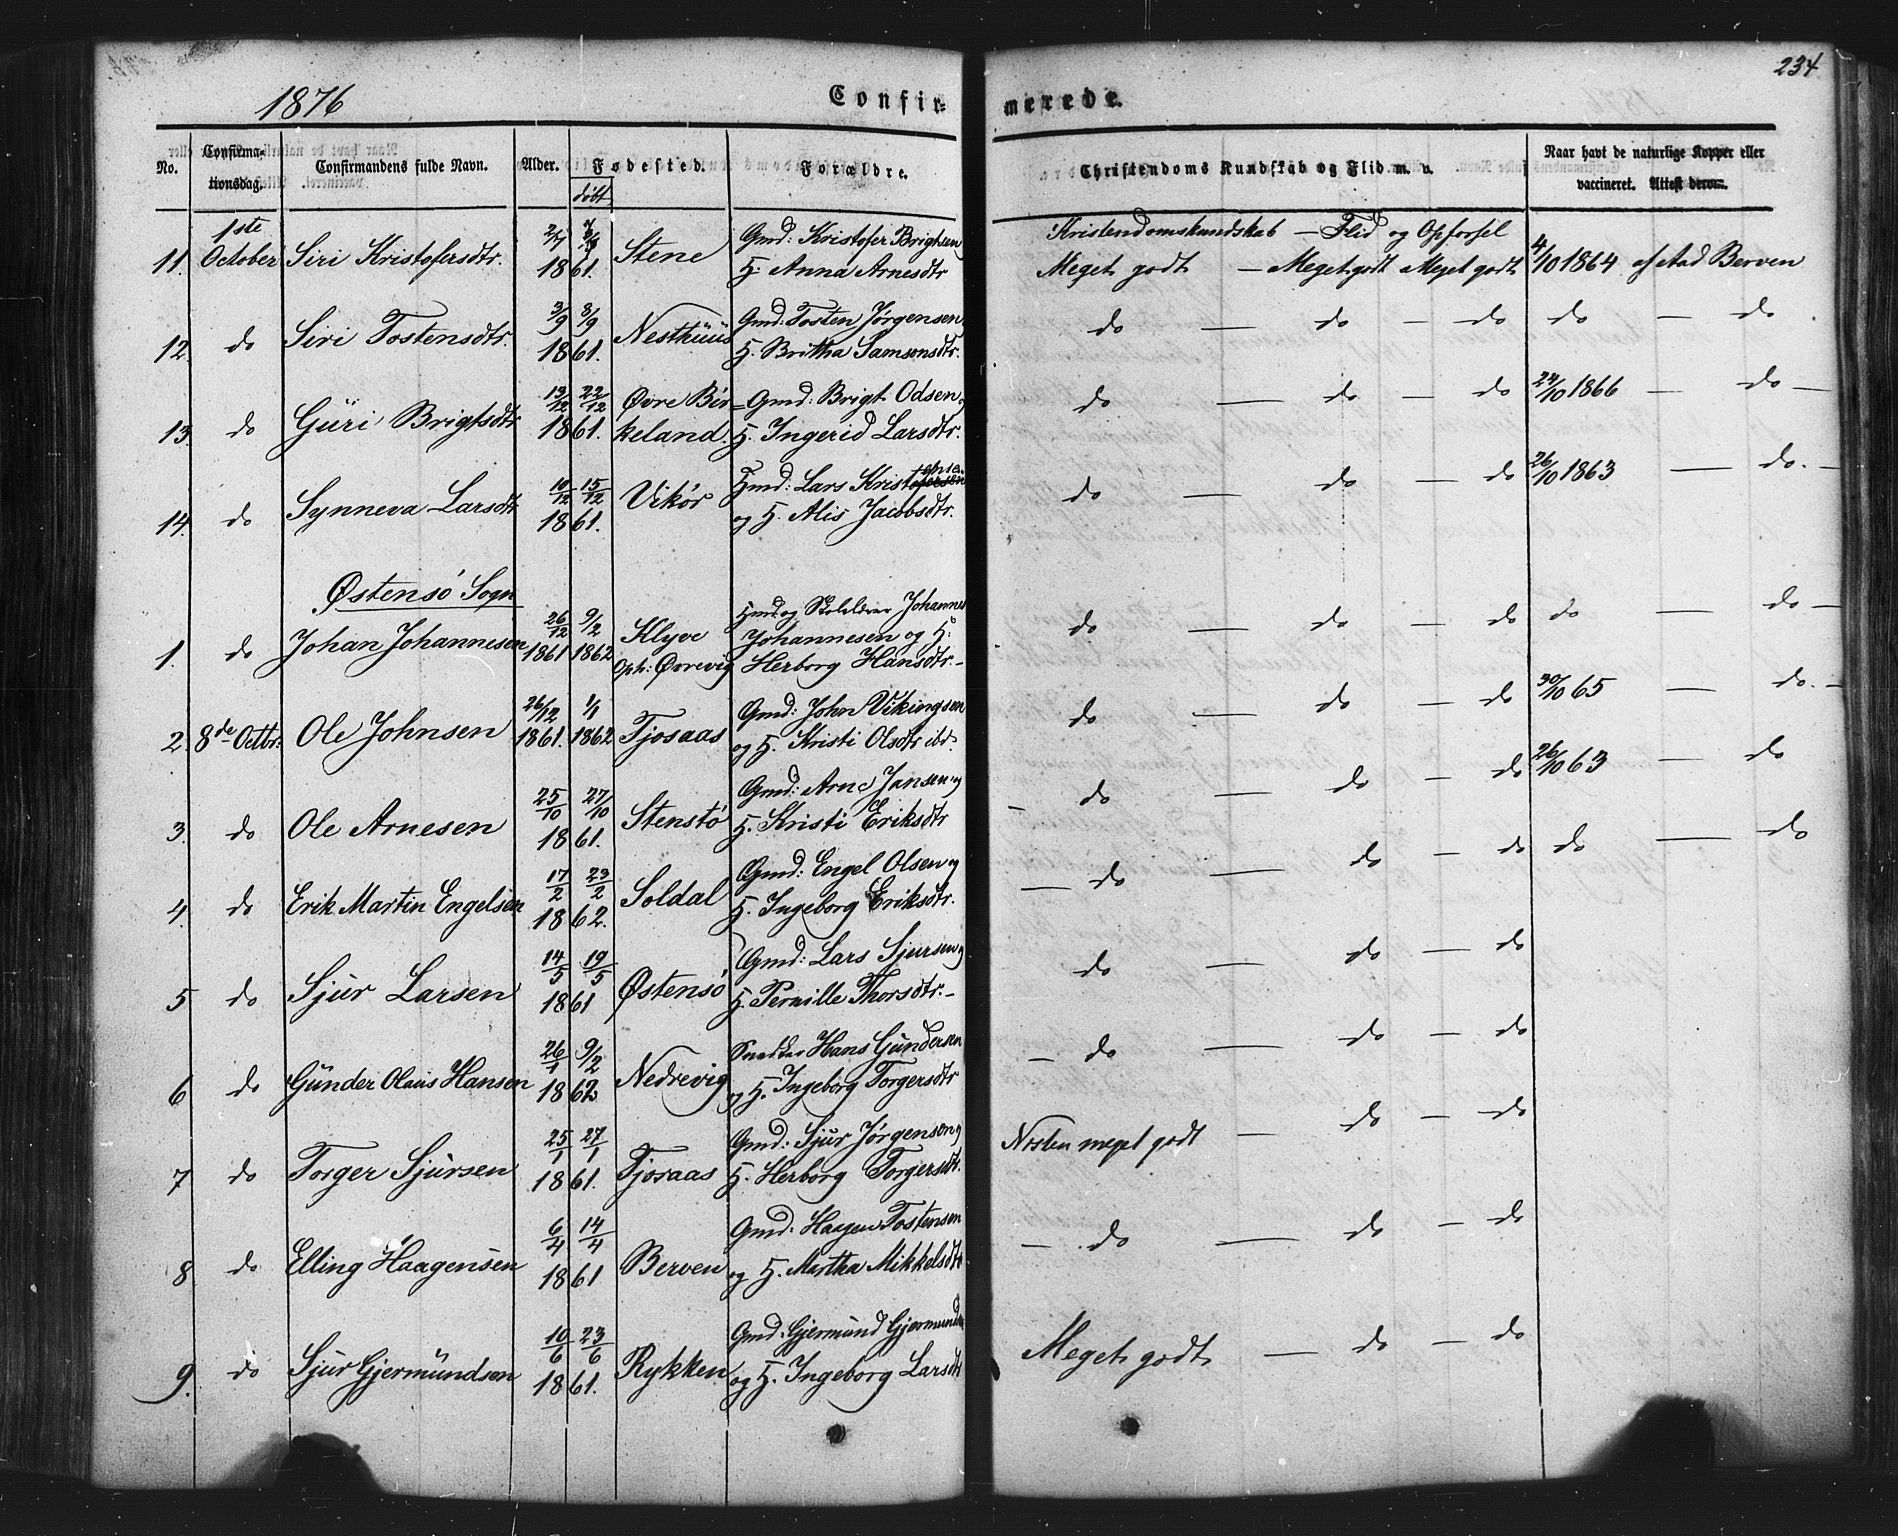 234
1876 Confir- merede.
No. Confirma-tionsdag. Confirmandens fulde Navn. Alder. Fødested. Forældre. Christendoms Kundskab og Flid m. v. Naar havt de naturlige Kopper eller vaccineret. Attest derom.
døbt
1ste Kristendomskundskab — Flid og Opførsel
11. October Siri Kristofersdtr. 2/7 1861. Stene Gmd: Kristofer Brigtsen H. Anna Arnesdtr Meget godt — Meget godt Meget godt 4/10 1864 af Aad Berven
12. do Siri Tostensdtr. 3/9 8/9 1861. Nesthuus Gmd: Tosten Jørgensen H. Britha Samsonsdtr. do — do — do do — do
13. do Guri Brigtsdtr 13/12 22/12 1861. Øvre Bir=keland. Gmd: Brigt Odsen H. Ingerid Larsdtr. do — do — do 24/10 1866 — do —
14. do Synneva Larsdtr 10/12 15/12 1861. Vikør Hmd: Lars Kristofersen og H. Alis Jacobsdtr. do — do — do 26/10 1863 — do. —
Østensö Sogn
1. do Johan Johannesen 26/12 1861 9/2 1862 Klyve Oph: Øvrevig Hmd og Skolelærer Johannes Johannesen og H: Herborg Hansdtr. do — do — do do — do —
2. 8de Octbr. Ole Johnsen 26/12 1861. 1/1 1862 Tjosaas Gmd: John Vikingsen og H. Kristi Olsdtr ibd. do — do — do 30/10 65 — do. —
3. do Ole Arnesen 25/10 27/10 1861. Stenstö Gmd: Arne Jansen og H. Kristi Eriksdtr — do — do — do 26/10 63 — do
4. do Erik Martin Engelsen 17/2 23/2 1862. Soldal Gmd: Engel Olsen og H. Ingeborg Eriksdtr. — do — do — do do — do
5 do Sjur Larsen 14/5 19/5 1861 Østensö Gmd: Lars Sjursen og H. Pernille Thorsdtr. — do — do — do
6 do Gunder Olaus Hansen 26/1 9/2 1862 Nedrevig Snedker Hans Gundersen og H. Ingeborg Torgersdtr — do — do — do
7 do Torger Sjursen 25/1 27/1 1861. Tjosaas Gmd: Sjur Jørgensen og H. Herborg Torgersdtr. Næsten meget godt — do — do
8 do Elling Haagensen 6/4 14/4 1861 Berven Gmd: Haagen Tostensen og H. Martha Mikkelsdtr — do — do — do
9. do Sjur Gjermundsen 10/6 23/6 1861. Rykken Gmd: Gjermund Gjermundsen og H. Ingeborg Larsdtr Meget godt — do — do